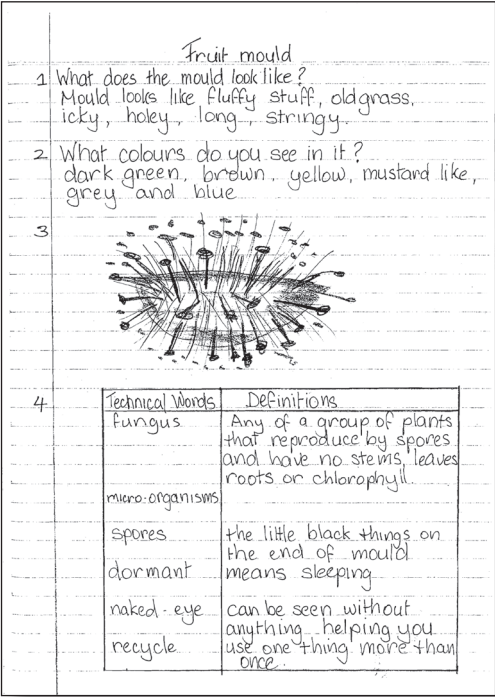 Fruit mould
1 What does the mould look like?
Mould looks like fluffy stuff, old grass,
icky, holey, long, stringy.
2 What colours do you see in it?
dark green, brown, yellow, mustard like,
grey and blue
3
4
Technical Words Definitions
fungus Any of a group of plants
that reproduce by spores
and have no stems, leaves
roots or chlorophyll
micro-organisms
spores the little black things on
the end of mould
dormant means sleeping
naked-eye can be seen without
anything helping you
recycle use one thing more than
once.